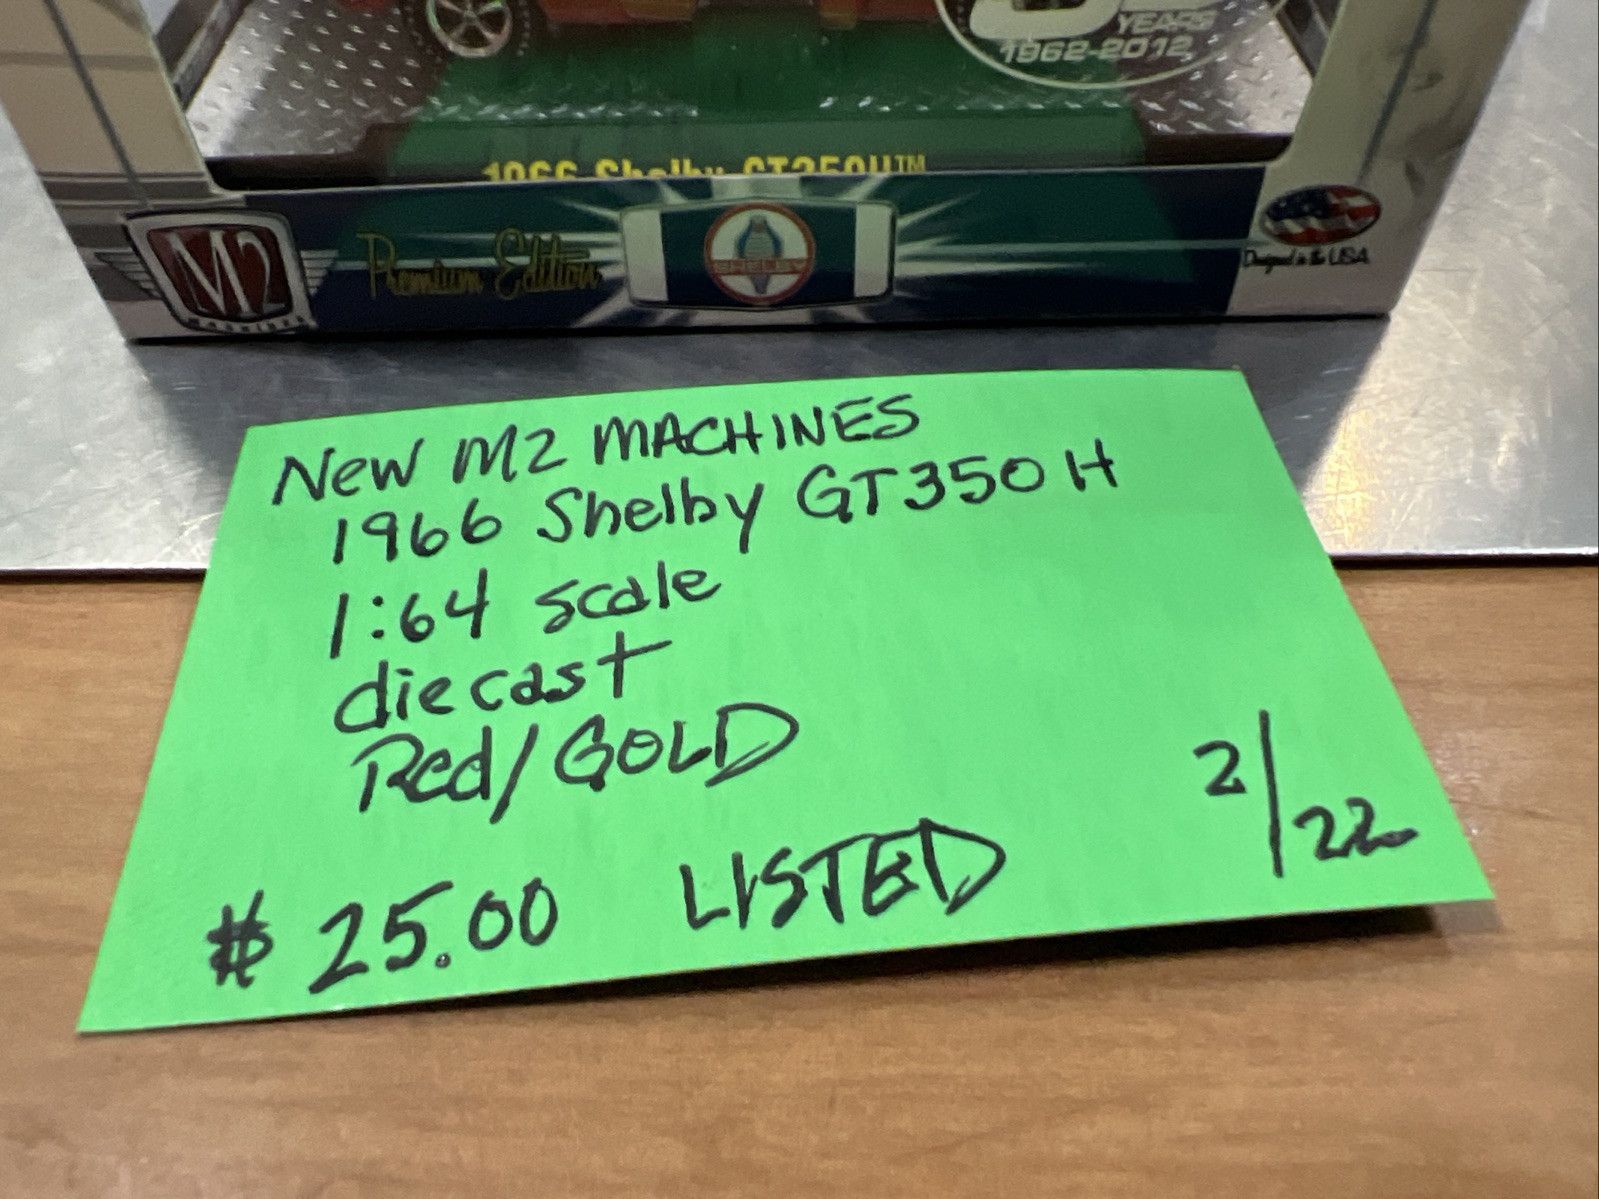 YEARS
1962-2012
1966 Shelby GT350H™
M2
MACHINES
Premium Edition
SHELBY
Designed in the USA
New M2 MACHINES
1966 Shelby GT350H
1:64 scale
diecast
Red/GOLD
2/22
$25.00 LISTED